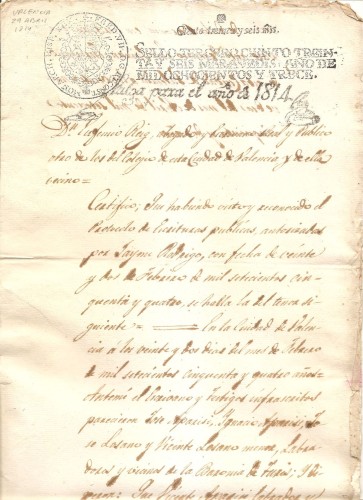 VALENCIA
29 ABRIL
1814
Ciento treinta y seis mrs.
SELLO TERCERO, CIENTO TREIN-
TA Y SEIS MARAVEDIS, AÑO DE
MIL OCHOCIENTOS Y TRECE.
Valga para el año de 1814
Dn. Eugenio Roig, Abogado y Escribano Real y Publico
otro de los del Colegio de esta Ciudad de Valencia y de ella
vecino=
Certifico, Que habiendo visto y reconocido el
Protocolo de Escrituras publicas, autorisadas
por Jayme Rodrigo, con fecha de veinte
y dos de Febrero de mil setecientos cin-
quenta y quatro, se halla la del tenor si-
guiente= En la Ciudad de Valen-
cia á los veinte y dos dias del mes de Febrero
de mil setecientos cinquenta y quatro años
Antemi el Escrivano y testigos infrascritos
parecieron Jose Aparisi, Ignacio Aparisi, Jo-
se Losano y Vicente Losano menor, Labra-
dores y vecinos de la Baronia de